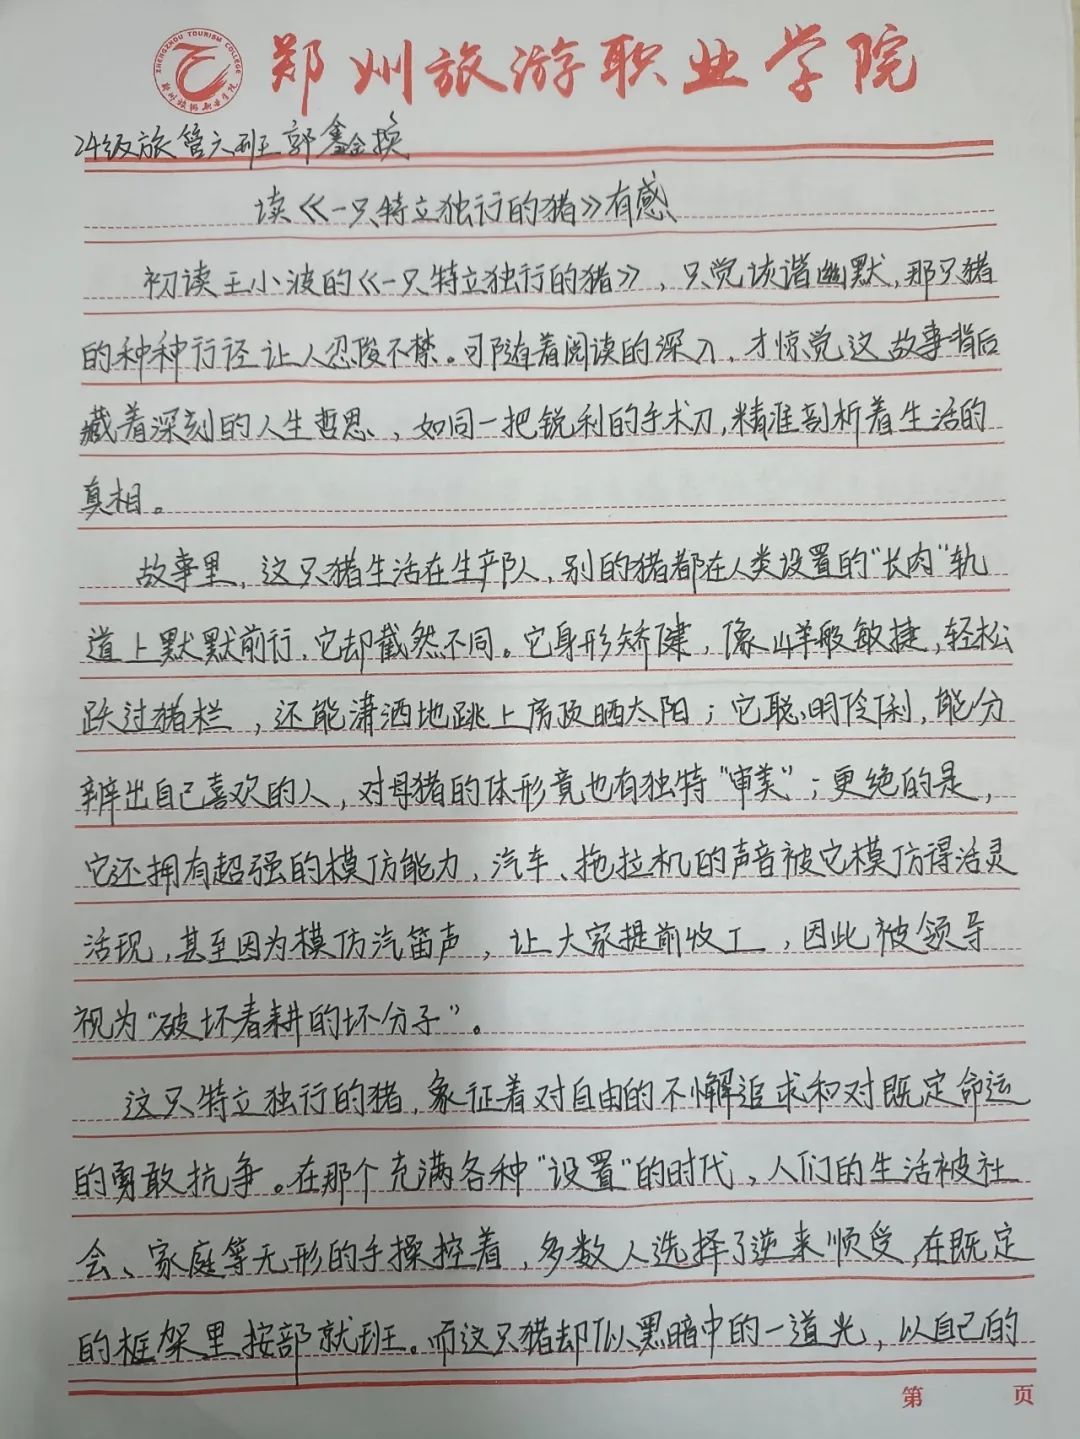 ZHENGZHOU TOURISM COLLEGE
郑州旅游职业学院
郑州旅游职业学院
24级旅管六班郭鑫换
读《一只特立独行的猪》有感
初读王小波的《一只特立独行的猪》，只觉诙谐幽默，那只猪
的种种行径让人忍俊不禁。可随着阅读的深入，才惊觉这故事背后
藏着深刻的人生哲思、如同一把锐利的手术刀，精准剖析着生活的
真相。
故事里，这只猪生活在生产队，别的猪都在人类设置的“长肉”轨
道上默默前行，它却截然不同。它身形矫健，像山羊般敏捷，轻松
跃过猪栏，还能潇洒地跳上房顶晒太阳；它聪明伶俐，能分
辨出自己喜欢的人，对母猪的体形竟也有独特“审美”；更绝的是，
它还拥有超强的模仿能力，汽车、拖拉机的声音被它模仿得活灵
活现，甚至因为模仿汽笛声，让大家提前收工，因此被领导
视为“破坏春耕的坏分子”。
这只特立独行的猪，象征着对自由的不懈追求和对既定命运
的勇敢抗争。在那个充满各种“设置”的时代、人们的生活被社
会、家庭等无形的手操控着，多数人选择了逆来顺受，在既定
的框架里按部就班。而这只猪却似黑暗中的一道光，以自己的
第 页